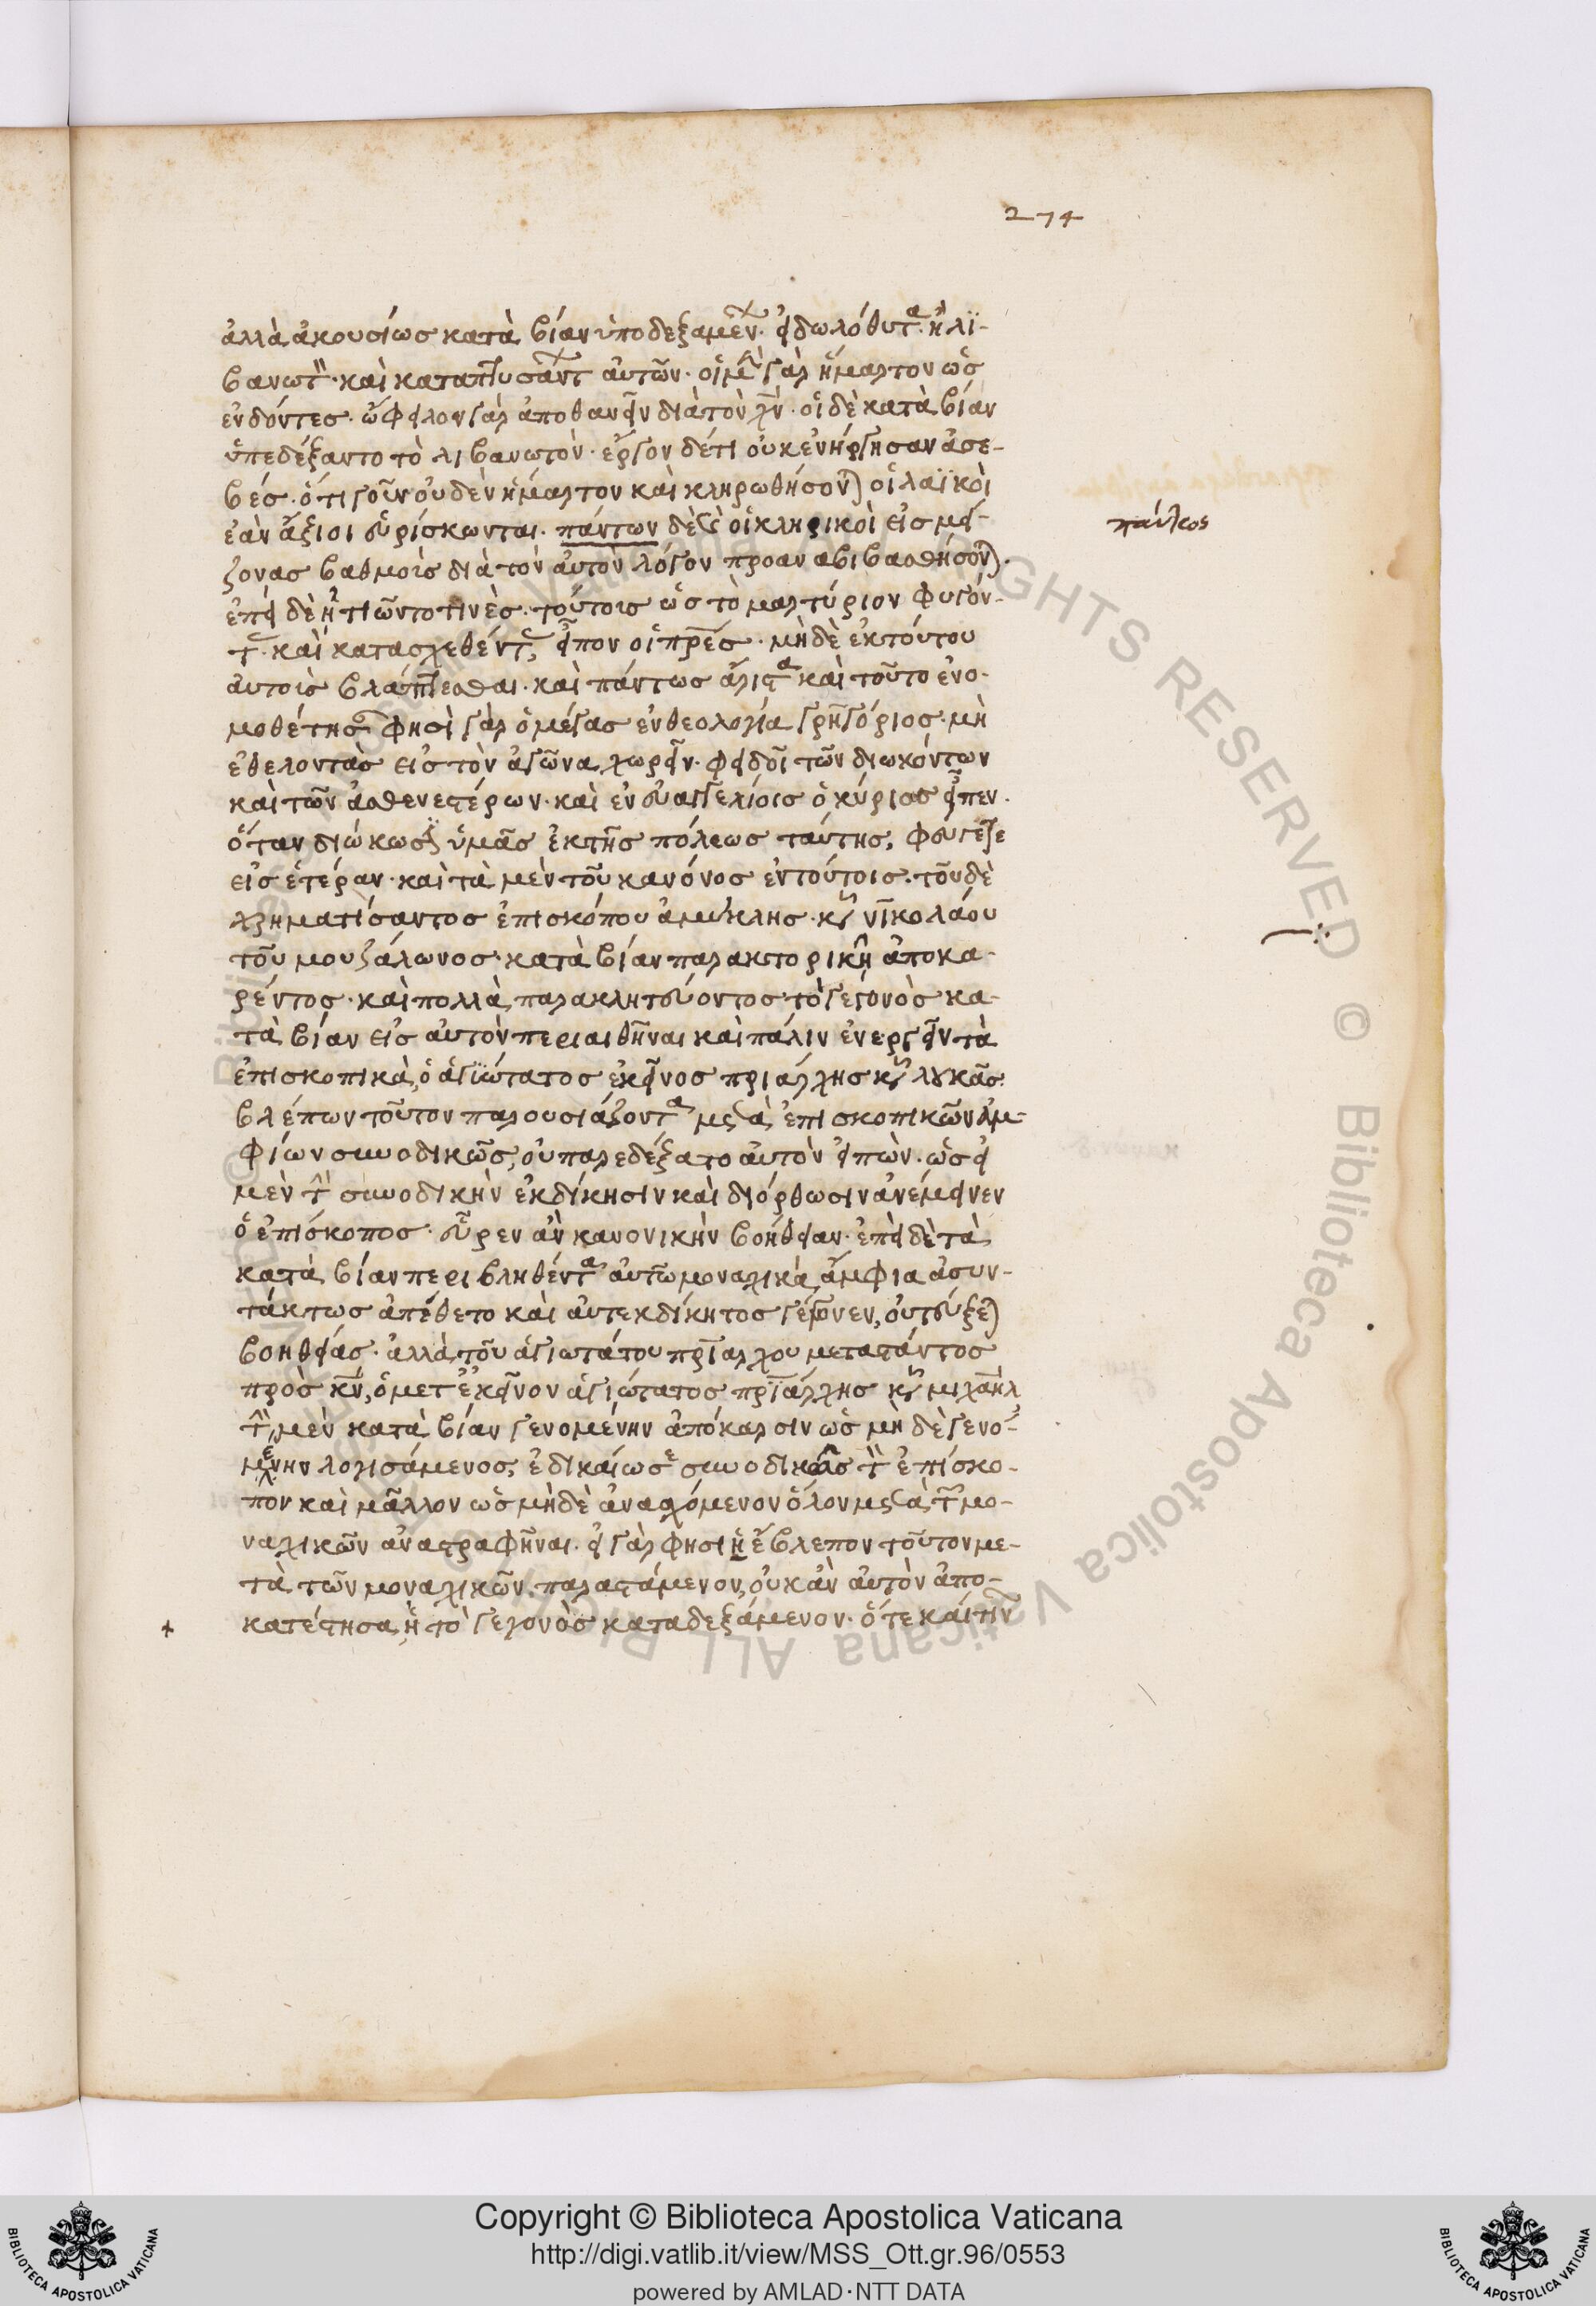 274
ἀλλὰ ἀκουσίως κατὰ βίαν ὑποδεξαμέν. εἰδωλόθυτα. ἢ λι-
βανωτ. καὶ καταπτυσάντ αὐτῶν. οἱ μὲν γὰρ ἥμαρτον ὡς
ἐνδόντες. ὤφειλον γὰρ ἀποθανεῖν διὰ τὸν χν. οἱ δὲ κατὰ βίαν
ὑπεδέξαντο τὸ λιβανωτὸν. ἔργον δέ τι οὐκ ἐνήργησαν ἀσε-
βές. ὅτι γοῦν οὐδὲν ἥμαρτον καὶ κληρωθήσον) οἱ λαϊκοὶ
ἐὰν ἄξιοι εὑρίσκωνται. πάντων δὲ οἱ κληρικοὶ εἰς μεί-
παύλεος
ζονας βαθμοὺς διὰ τὸν αὐτὸν λόγον προαναβιβασθήσον).
ἐπεὶ δὲ ἠτιῶντο τινὲς. τούτοις ὡς τὸ μαρτύριον φυγόν-
τ. καὶ κατασχεθέντ, εἶπον οἱ πρες. μὴ δὲ ἐκ τούτου
αὐτοὺς βλάπτεσθαι. καὶ πάντως ἄριστα καὶ τοῦτο ἐνο-
μοθέτησ φησὶ γὰρ ὁ μέγας ἐν θεολογία γρηγόριος. μὴ
ἐθελοντὰς εἰς τὸν ἀγῶνα χωρεῖν. φειδοῖ τῶν διωκόντων
καὶ τῶν ἀσθενεστέρων. καὶ ἐν εὐαγγελίοις ὁ κύριος εἶπεν.
ὅταν διώκωσιν ὑμᾶς ἐκ τῆς πόλεως ταύτης, φεύγετε
εἰς ἑτέραν. καὶ τὰ μὲν τοῦ κανόνος ἐν τούτοις. τοῦ δὲ
χρηματίσαντος ἐπισκόπου ἀμύκλης. κυ νικολάου
τοῦ μουζάλωνος. κατὰ βίαν πρακτορικὴ ἀποκα-
ρέντος. καὶ πολλὰ παρακλητεύοντος τὸ γεγονὸς κα-
τὰ βίαν εἰς αὐτὸν περιαιθῆναι καὶ πάλιν ἐνεργεῖν τὰ
ἐπισκοπικὰ, ὁ ἁγιώτατος ἐκεῖνος πριάρχης κυ λουκᾶς
βλέπων τοῦτον παρουσιάζοντα μετὰ ἐπισκοπικῶν ἀμ-
φίων συνοδικῶς, οὐ παρεδέξατο αὐτὸν εἰπὼν. ὡς εἰ
μὲν τὴν συνοδικὴν ἐκδίκησιν καὶ διόρθωσιν ἀνέμεινεν
ὁ ἐπίσκοπος. εὗρεν ἂν κανονικὴν βοήθειαν. ἐπεὶ δὲ τὰ
κατὰ βίαν περιβληθέντα αὐτῶ μοναχικὰ ἄμφια ἀσυν-
τάκτως ἀπέθετο καὶ αὐτεκδίκητος γέγονεν, οὐ τεύξε)
βοηθείας. ἀλλὰ τοῦ ἁγιωτάτου πριάρχου μεταστάντος
πρὸς κν, ὁ μετ ἐκεῖνον ἁγιώτατος πριάρχης κυ μιχαὴλ
τὴν μὲν κατὰ βίαν γενομένην ἀπόκαρσιν ὡς μὴ δὲ γενο-
μένην λογισάμενος, ἐδικαίωσε συνοδικῶς τὸν ἐπίσκο-
πον καὶ μᾶλλον ὡς μὴ δὲ ἀνασχόμενον ὅλον μετὰ τῶν μο-
ναχικῶν ἀναστραφῆναι. εἰ γὰρ φησὶ ἢ ἔβλεπον τοῦτον με-
τὰ τῶν μοναχικῶν. παραστάμενον, οὐκ ἂν αὐτὸν ἀπο-
κατέστησα, ἢ τὸ γεγονὸς καταδεξάμενον. ὅτε καὶ τὴν
Copyright © Biblioteca Apostolica Vaticana
http://digi.vatlib.it/view/MSS_Ott.gr.96/0553
powered by AMLAD·NTT DATA